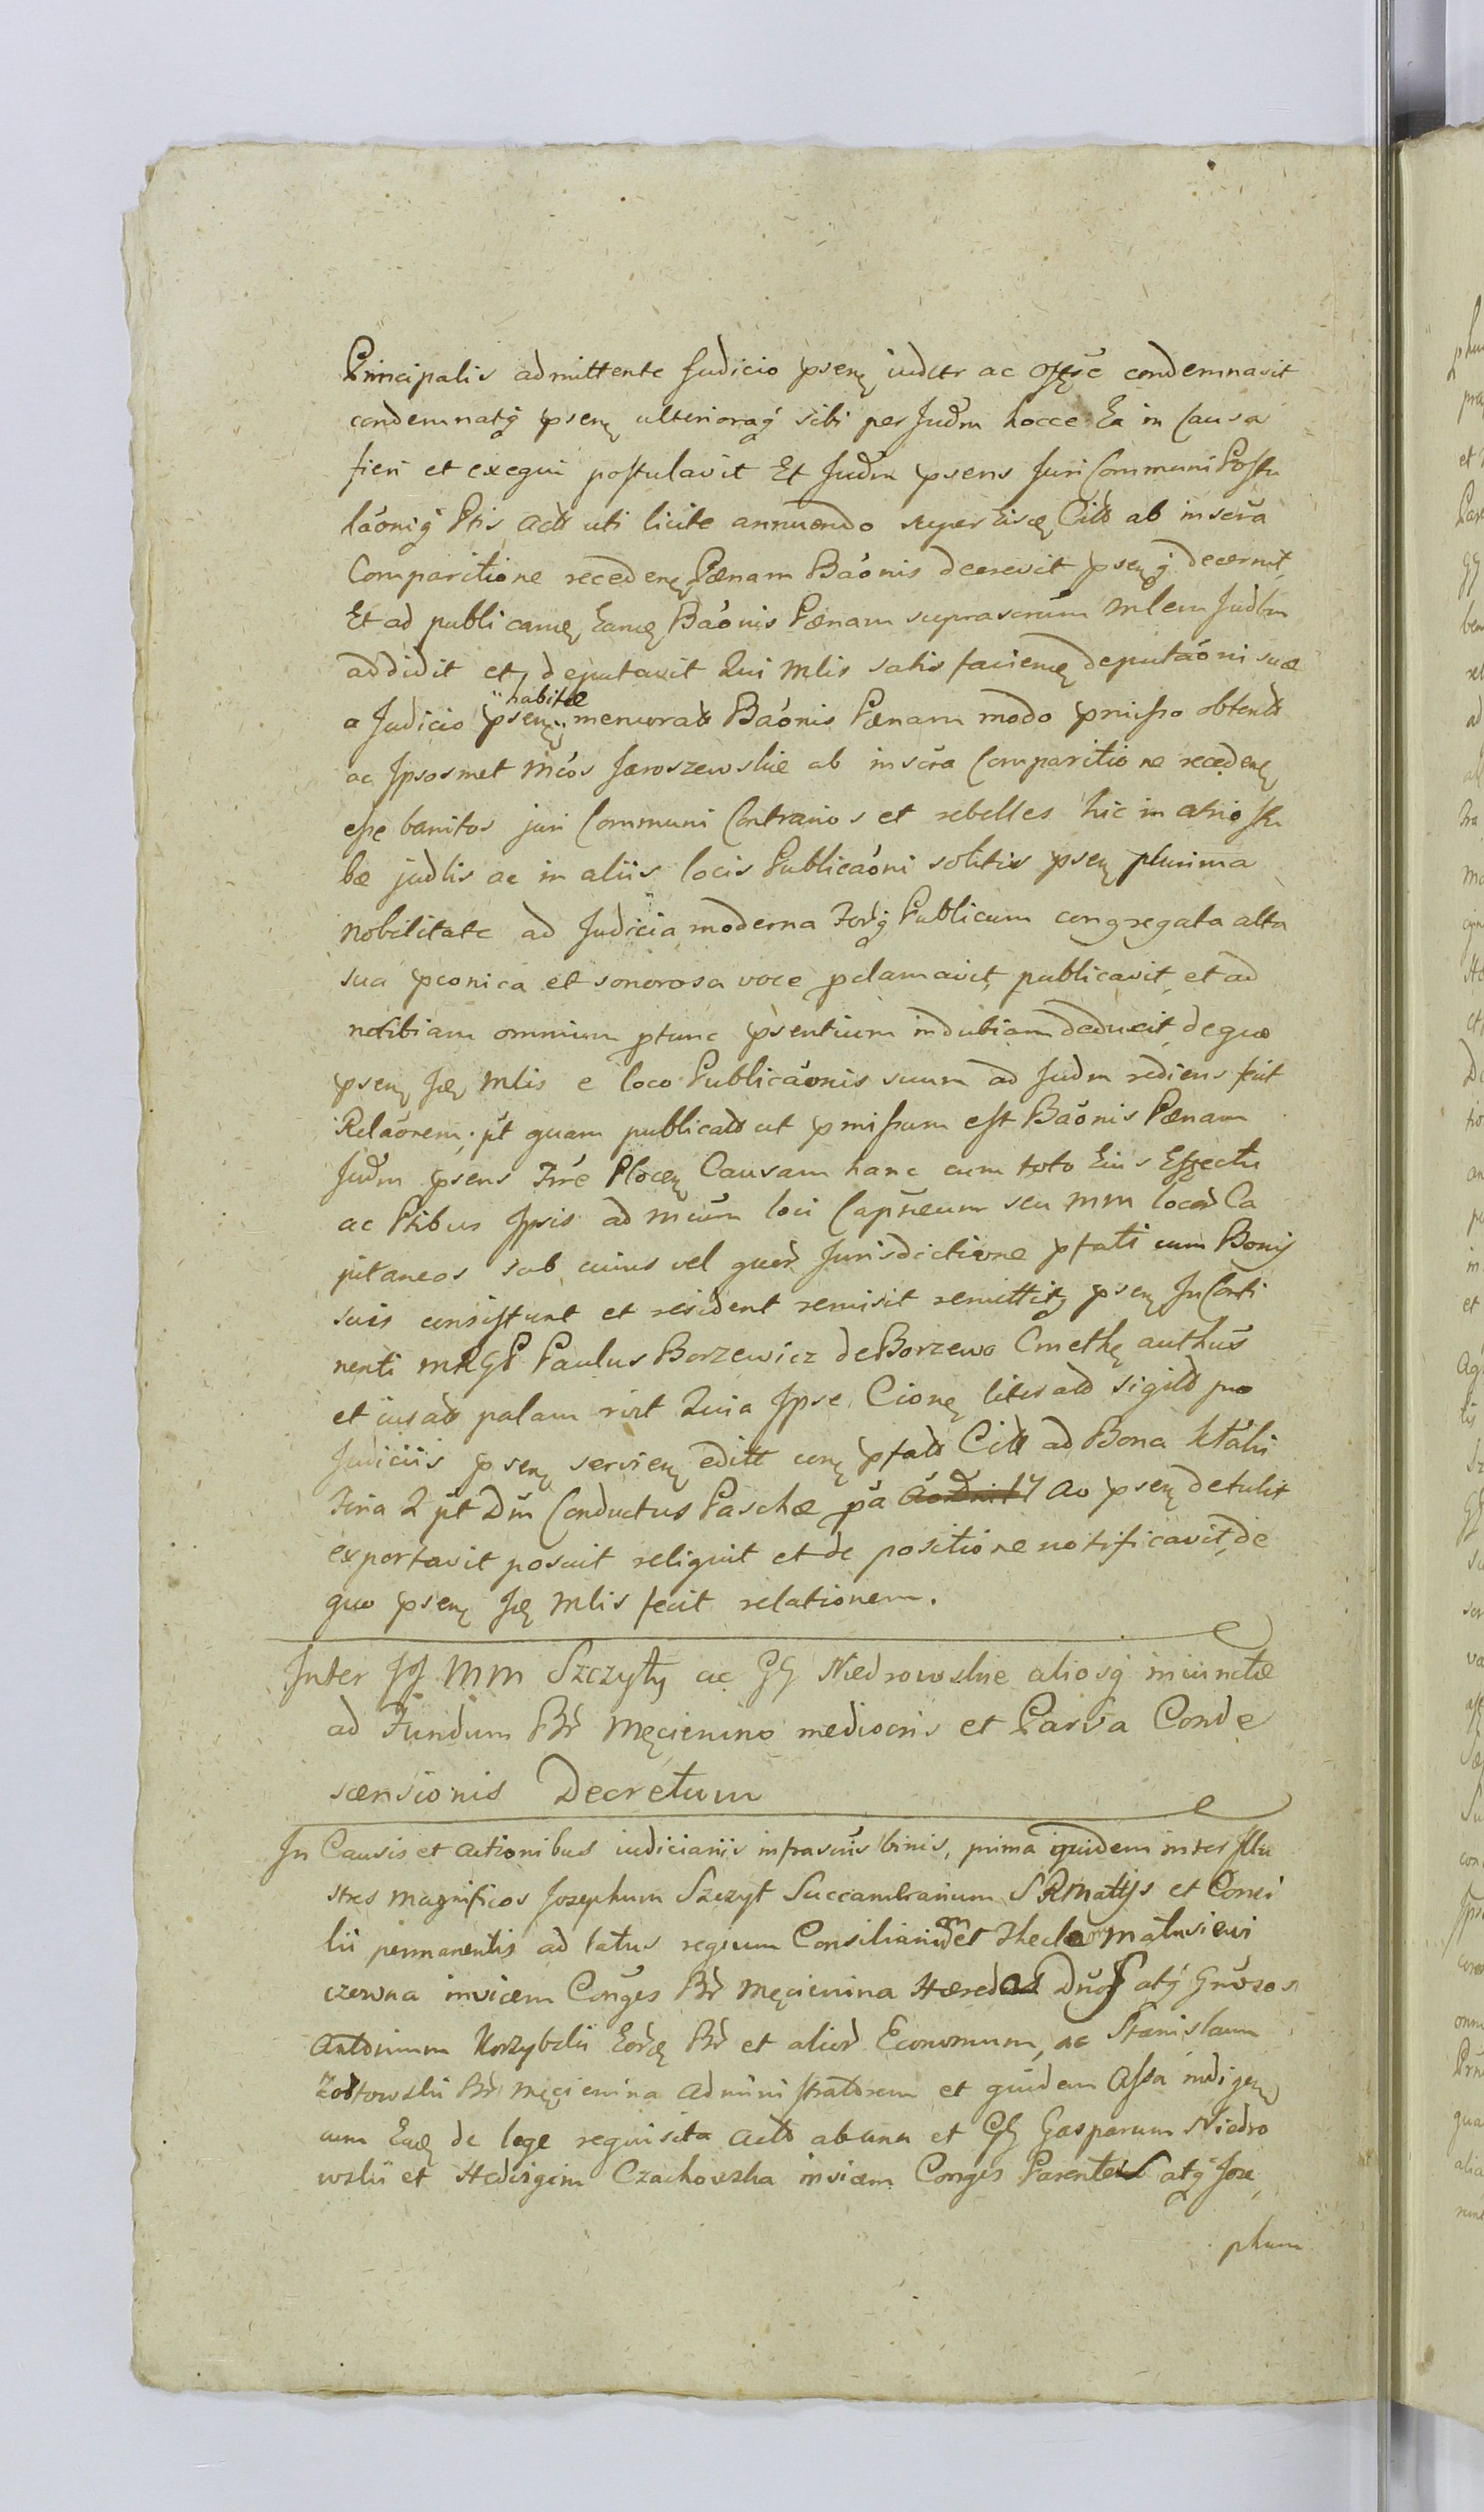 Principalis admittente Judicio psenę iudctr ac condemnavit
condemnatq́ psenę ulterioraq́ sibi per Judm hocce Ea in Causa
fieri et exequi postulavit Et Judm psens Juri Communi Postu
láoniq́ Ptis actt uti licite annuendo super Citt ab inscra
Comparitione recedenę Pænam Báonis decrevit psenq́ decernit
Et ad publicamę Eamę Báonis Pænam suprascrum mlem Judm
addidit et deputavit Qui mlis satis faciemę deputáoni suæ
a Judicio psenę habitæ memoratt Báonis Pænam modo pmisso obtentt
ac Ipsosmet mcós Jaroszewskie ab inscra Comparitione recedenę
esse banitos juri Communi Contrarios et rebelles hic in atrio stu
bæ judlis ac in aliis locis Publicaóni solitis psenę plurima
nobilitate ad Judicia moderna Forq́ Publicum congregata alta
sua pconica et sonorosa voce pclamavit, publicavit, et ad
notitiam omnium ptunc psentium indubiam deduxit, de quo
psenę Jcę mlis e loco Publicáonis suum ad Judm rediens fecit
Reláonem. pt quam publicatt ut pmissum est Báonis Pænam
Judm psens Trre Plocenę Causam hanc cum toto Eius Effectu
ac Ptibus Ipsis ad mcum loci Capneum seu mm locor Ca
pitaneos sub cuius vel quor Jurisdictione pfati cum Bonis
suis consistunt et resident remisit remittitq psenę In Conti
nenti mRGP Paulus Borzewicz de Borzewo Cmethę authus
et iuratt palam rixt Quia Ipse Cionę literatt sigilltt pro
Judiciis psenę servienę editt conę pfatt Citt ad Bona
Feria 2 pt Dm Conductus Paschæ pa Ao psenę detulit
exportavit posuit reliquit et de positione notificavit, de
quo psenę Jcę mlis fecit relationem.
Inter JJ MM Szczyty ac GG Niedrowskie aliosq́ iniunctæ
ad Fundum Br Męcienino mediocris et Parva Conde
scensionis Decretum
In Causis et actionibus iudiciariis infrascris binis, prima quidem inter Illu
stres magnificos Josephum Szczyt Succamerarium SRMattjs et Consi
lii permanentis ad latus regium Consiliarium et Theclam Matusiewi
czowna invicem Conges Br Męcienina Hæredes atq́ Grosos
Antonium Korzybski Eorę Br et alior Economum, ac Stanislaum
Zottowski Br Męcienina Administratorem et quidem Assa indigenę
cum Eaę de lege requisita actt ab una et GG Gasparum Niedro
wski et Hedvigim Czachowska invicem Conges Parentes atq́ Jose
phum